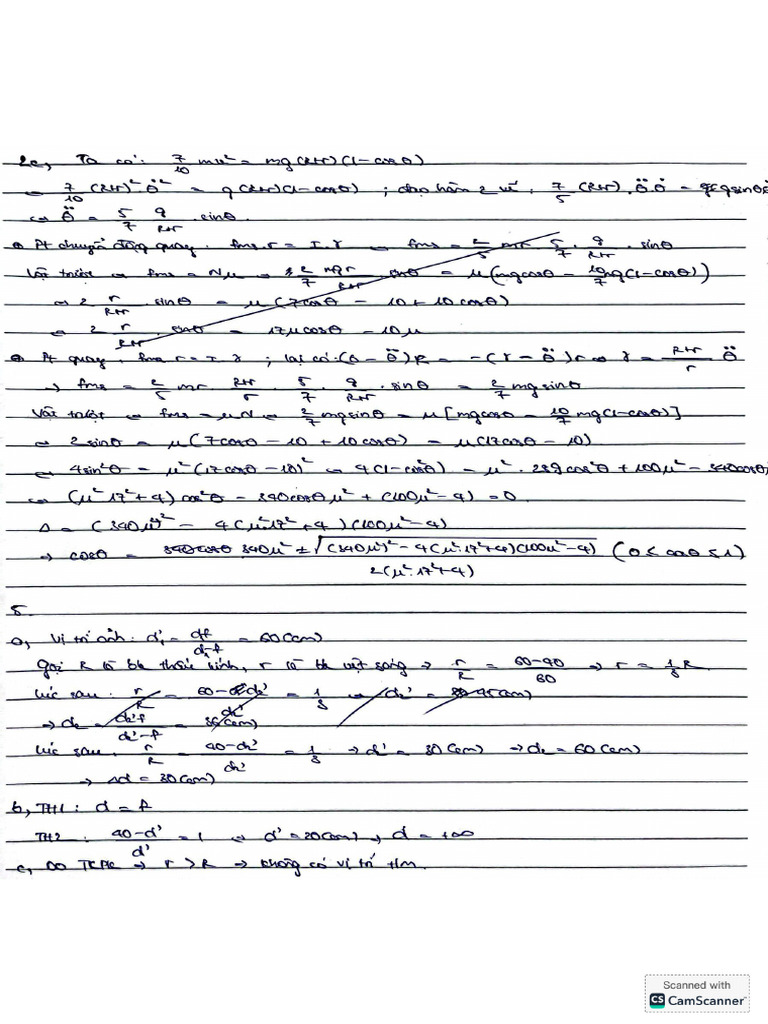 2c, Ta có: 7/10 mv² = mg(R+r)(1-cosθ)
⇔ 7/10 (R+r)² θ̇² = g(R+r)(1-cosθ) ; đạo hàm 2 vế: 7/5 (R+r). θ̈ θ̇ = g sinθ
⇔ θ̈ = 5/7 g/(R+r) . sinθ.
Pt chuyển động quay. fms.r = I.γ ⇔ fms = 2/5 mr. 5/7 . g/(R+r) . sinθ
Vật trượt ⇔ fms = Nμ ⇔ 2/7 mgr/(R+r) sinθ = μ(mgcosθ - 10/7 mg(1-cosθ))
⇔ 2 r/(R+r) . sinθ = μ(7cosθ - 10 + 10cosθ)
⇔ 2 r/(R+r) . sinθ = 17μcosθ - 10μ
Pt quay. fms r = I γ ; lại có (0 - θ̈)R = -(γ - θ̈)r ⇔ γ = (R+r)/r θ̈
→ fms = 2/5 mr. (R+r)/r . 5/7 . g/(R+r) . sinθ = 2/7 mgsinθ
Vật trượt ⇔ fms = μN ⇔ 2/7 mgsinθ = μ[mgcosθ - 10/7 mg(1-cosθ)]
⇔ 2sinθ = μ(7cosθ - 10 + 10cosθ) = μ(17cosθ - 10)
⇔ 4sin²θ = μ²(17cosθ - 10)² ⇔ 4(1-cos²θ) = μ². 289cos²θ + 100μ² - 340cosθ
⇔ (μ²17² + 4)cos²θ - 340cosθμ² + (100μ² - 4) = 0
Δ = (340μ²)² - 4(μ²17² + 4)(100μ² - 4)
→ cosθ = (340μ² ± √((340μ²)² - 4(μ².17²+4)(100μ²-4))) / (2(μ².17²+4)) (0 ≤ cosθ ≤ 1)
5.
a, Vị trí ảnh: d'₁ = df/(d₁-f) = 60(cm)
Gọi R là bk thấu kính, r là bk vệt sáng → r/R = (60-40)/60 → r = 1/3 R.
Lúc sau: r/R = (60-d₂')/d₂' = 1/3 ⇔ d₂' = 45(cm)
→ d₂ = d₂'f/(d₂'-f) = 36(cm)
Lúc sau: r/R = (40-d₂')/d₂' = 1/3 → d' = 30(cm) → d₂ = 60(cm)
→ Δd = 30(cm)
b, TH1: d = f
TH2: (40-d')/d' = 1 ⇔ d' = 20(cm), d = +∞
c, Do TKPK → r > R → không có vị trí tm.
Scanned with
CS CamScanner